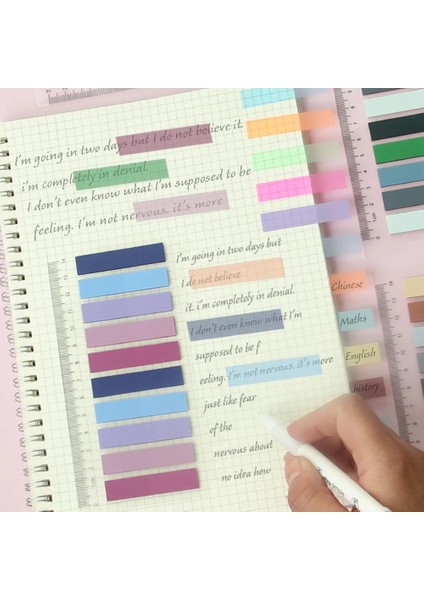 I'm going in two days but I do not believe it.
i'm completely in denial.
I don't even know what I'm supposed to be
feeling. I'm not nervous. it's more
I'm going in two days but
I do not believe
it. i'm completely in denial.
I don't even know what I'm
supposed to be f
eeling. I'm not nervous. it's more
just like fear
of the
nervous about
no idea how
Chinese
Maths
English
history